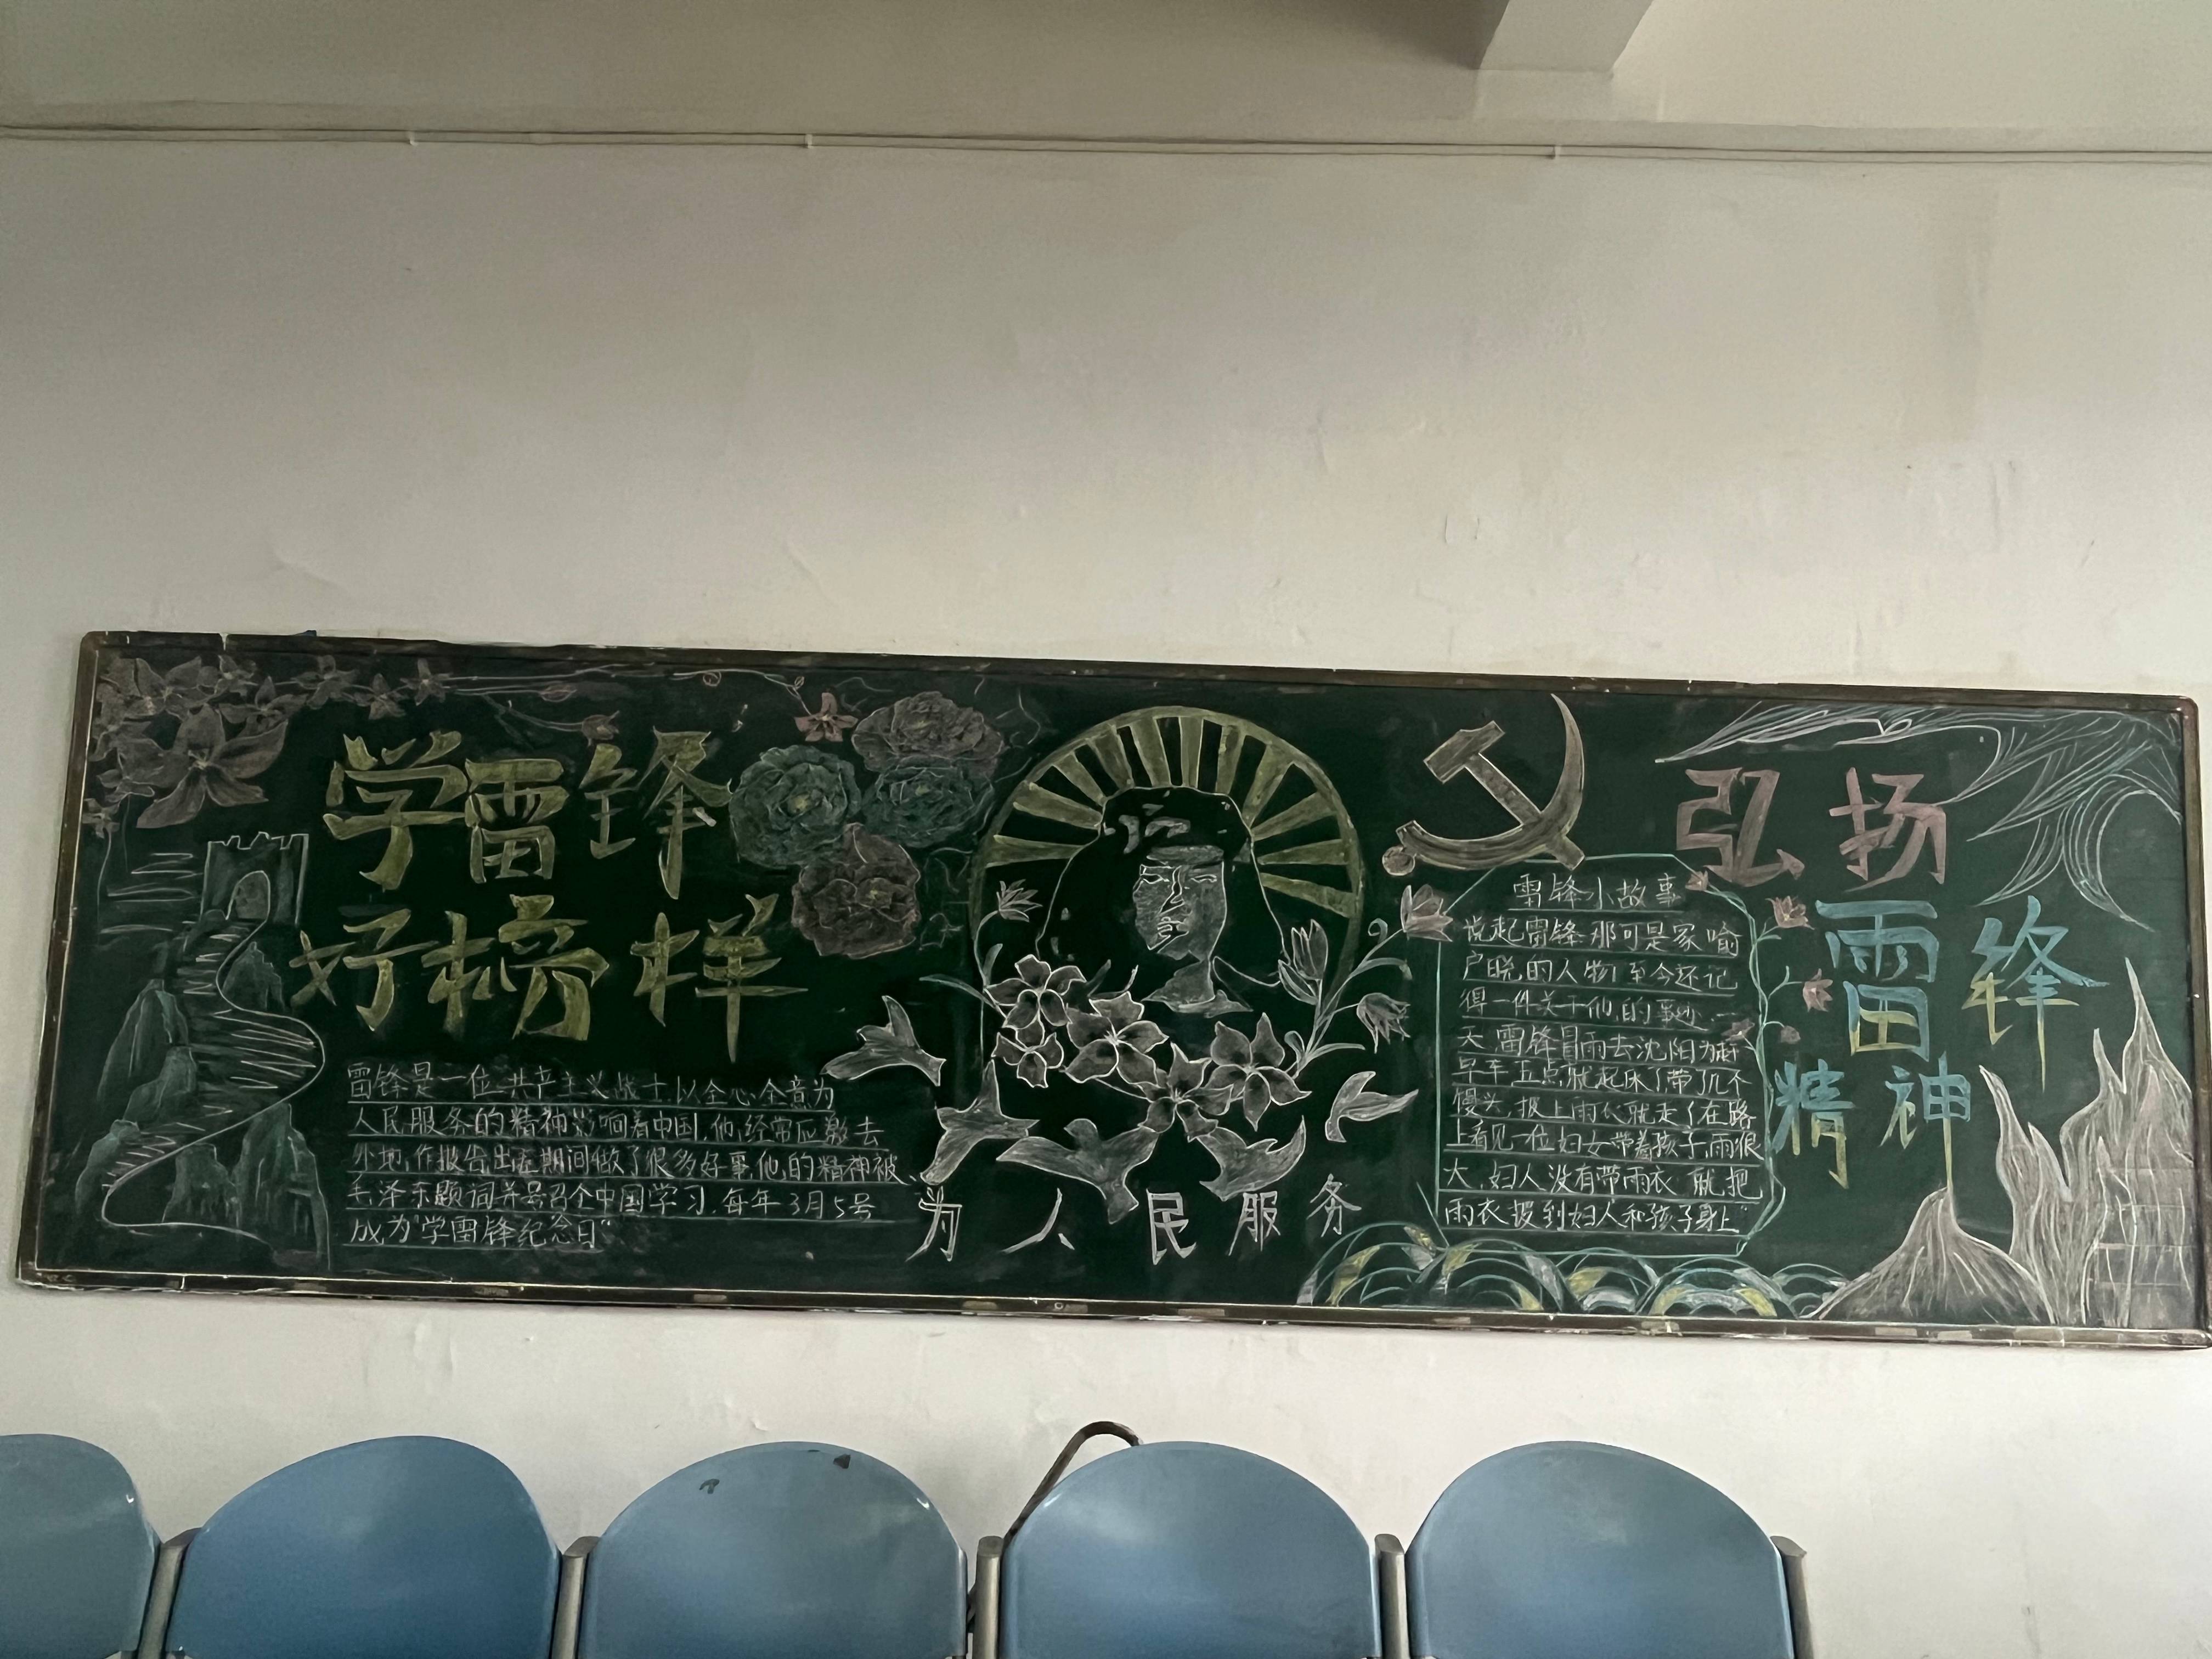 学雷锋
好榜样
雷锋是一位共产主义战士,以全心全意为
人民服务的精神影响着中国,他经常应邀去
外地,作报告出差期间做了很多好事,他的精神被
毛泽东题词并号召全中国学习.每年3月5号
成为"学雷锋纪念日"
为人民服务
雷锋小故事
说起雷锋那可是家喻
户晓,的人物,至今还记
得一件关于他,的事迹.一
天,雷锋冒雨去沈阳为赶
早车五点就起床了带了几个
馒头,披上雨衣就走了在路
上看见一位妇女带着孩子,雨很
大,妇人没有带雨衣,就把
雨衣披到妇人和孩子身上"
弘扬
雷锋
精神